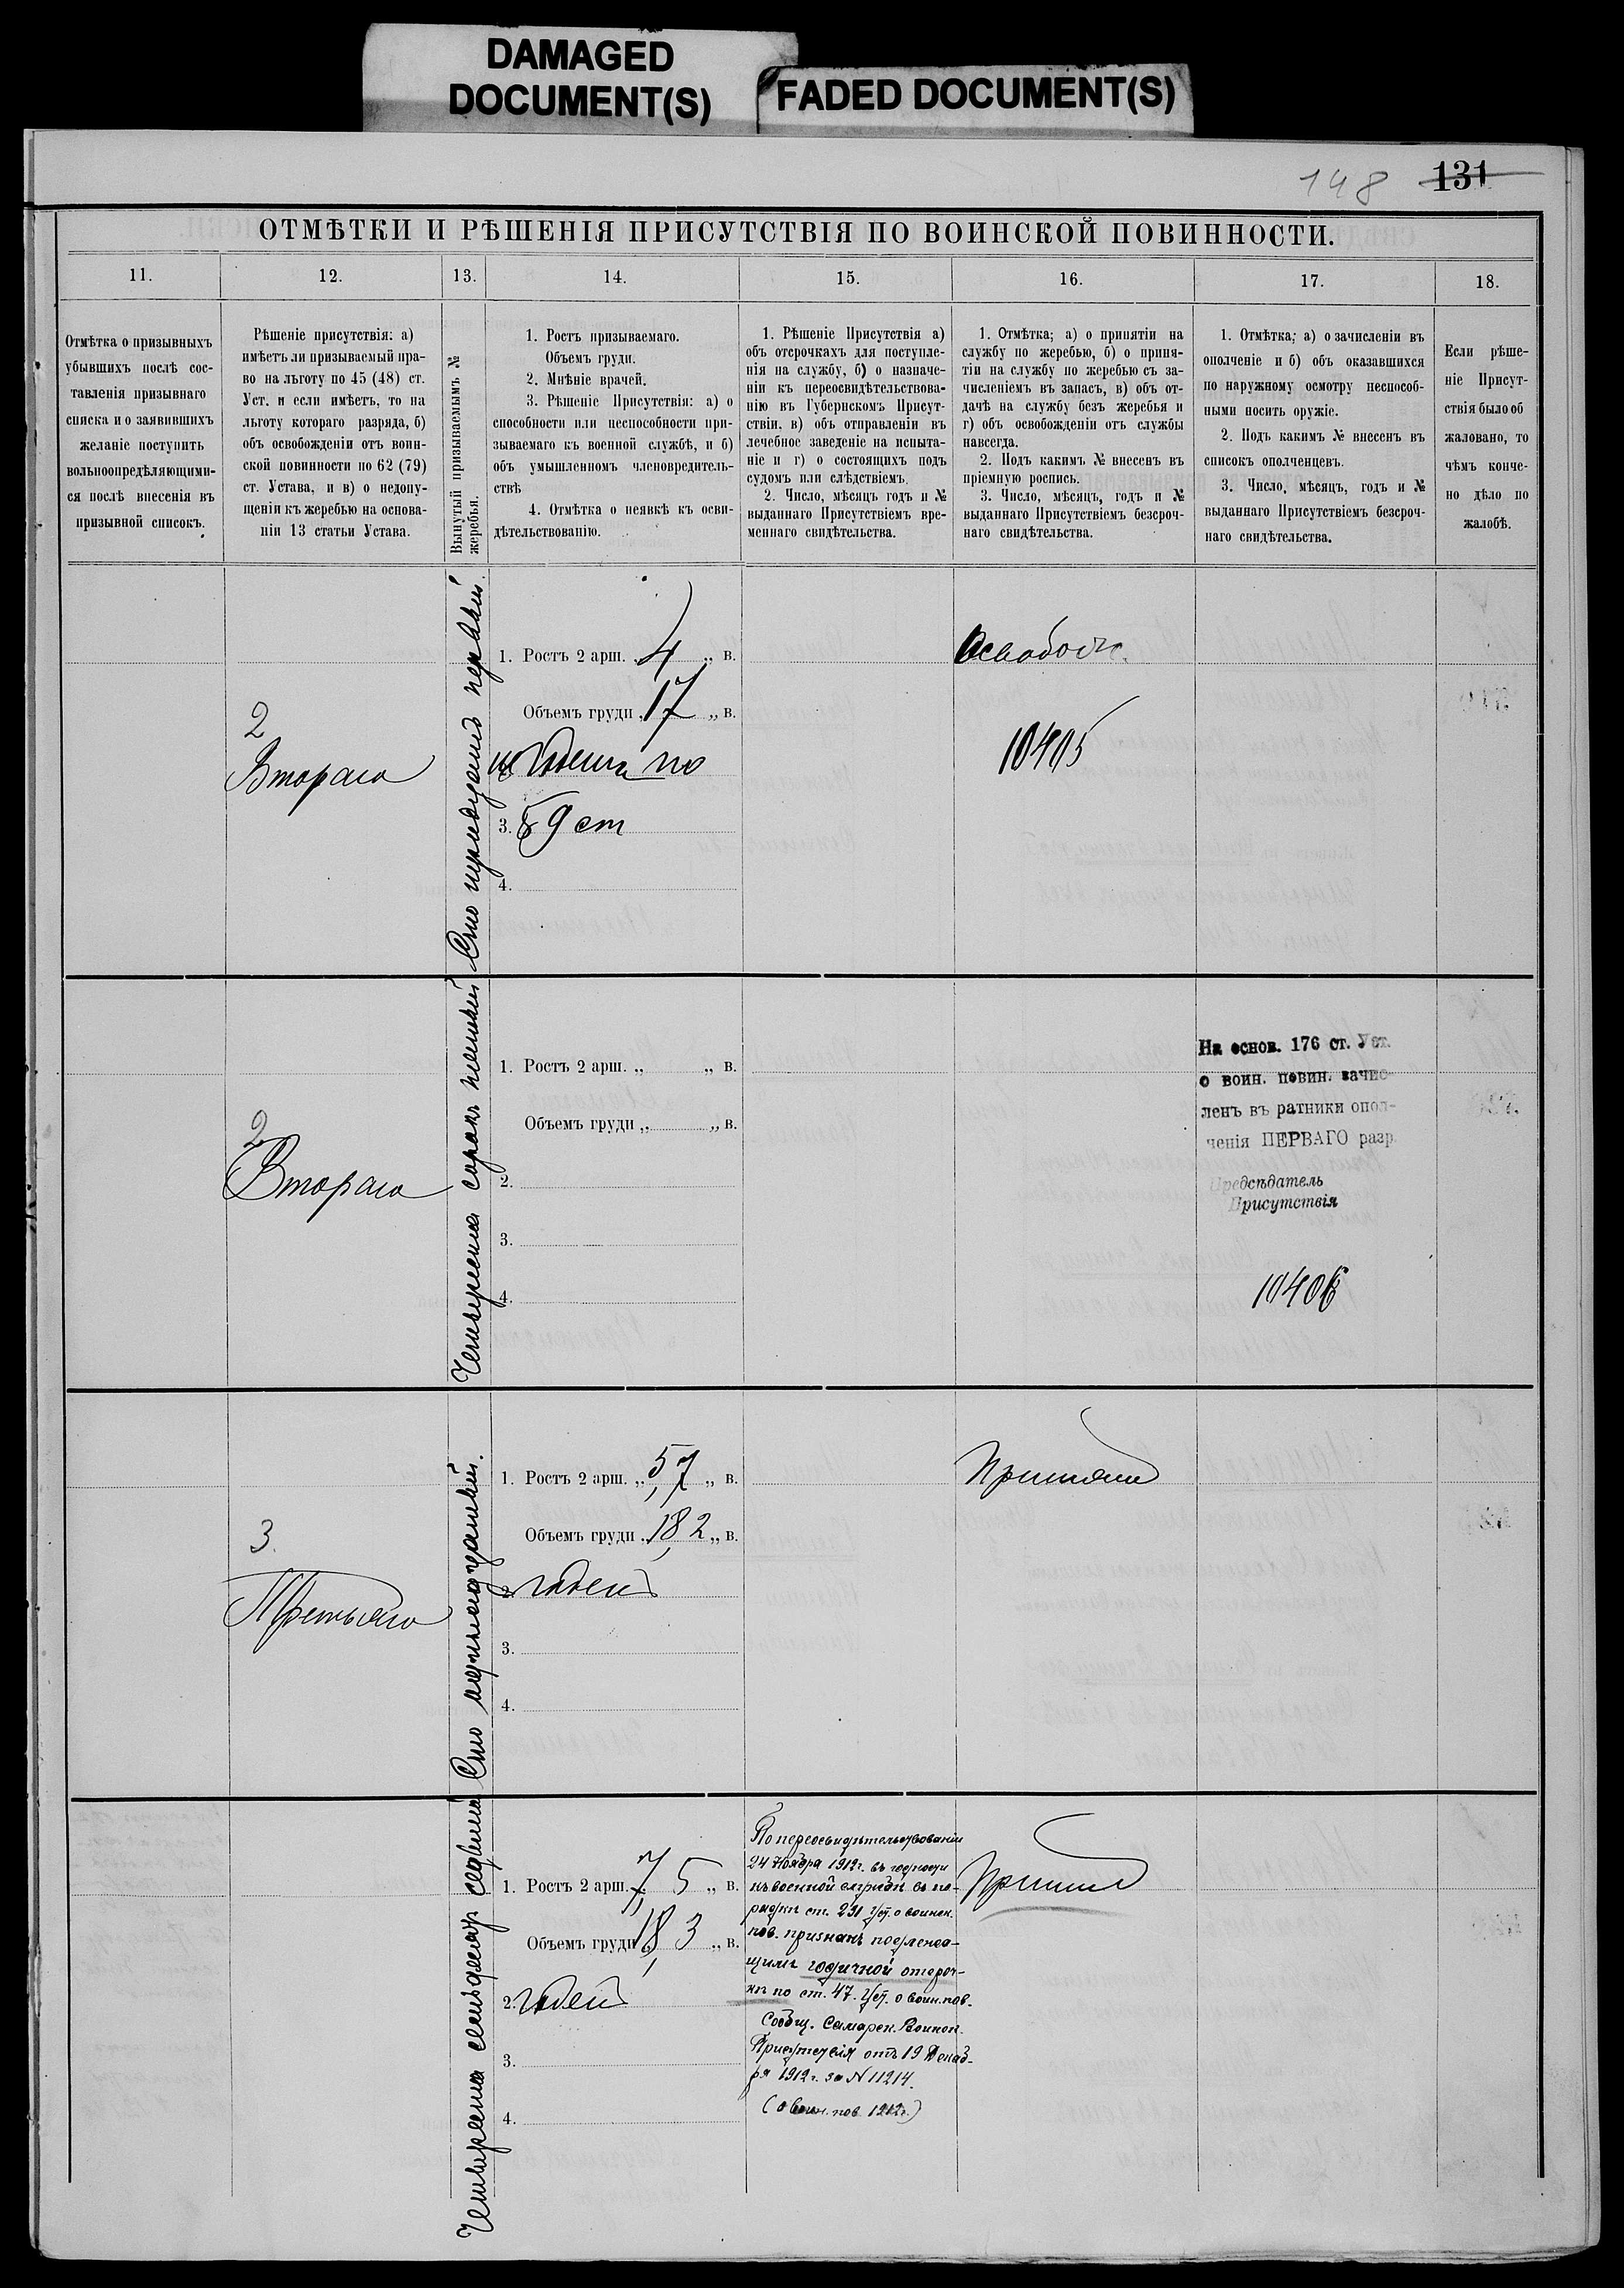 DAMAGED
DOCUMENT(S)
FADED DOCUMENT(S)
148 131
ОТМѢТКИ И РѢШЕНІЯ ПРИСУТСТВІЯ ПО ВОИНСКОЙ ПОВИННОСТИ.
11. 12. 13. 14. 15. 16. 17. 18.
Отмѣтка о призывныхъ
убывшихъ послѣ сос-
тавленія призывнаго
списка и о заявившихъ
желаніе поступить
вольноопредѣляющими-
ся послѣ внесенія въ
призывной списокъ.
Рѣшеніе присутствія: а)
имѣетъ ли призываемый пра-
во на льготу по 45 (48) ст.
Уст. и если имѣетъ, то на
льготу котораго разряда, б)
объ освобожденіи отъ воин-
ской повинности по 62 (79)
ст. Устава, и в) о недопу-
щеніи къ жеребью на основа-
ніи 13 статьи Устава.
Вынутый призываемымъ №
жеребья.
1. Ростъ призываемаго.
Объемъ груди.
2. Мнѣніе врачей.
3. Рѣшеніе Присутствія: а) о
способности или неспособности при-
зываемаго къ военной службѣ, и б)
объ умышленномъ членовредитель-
ствѣ
4. Отмѣтка о неявкѣ къ осви-
дѣтельствованію.
1. Рѣшеніе Присутствія а)
объ отсрочкахъ для поступле-
нія на службу, б) о назначе-
ніи къ переосвидѣтельствова-
нію въ Губернскомъ Присут-
ствіи, в) объ отправленіи въ
лечебное заведеніе на испыта-
ніе и г) о состоящихъ подъ
судомъ или слѣдствіемъ.
2. Число, мѣсяцъ годъ и №
выданнаго Присутствіемъ вре-
меннаго свидѣтельства.
1. Отмѣтка; а) о принятіи на
службу по жеребью, б) о приня-
тіи на службу по жеребью съ за-
численіемъ въ запасъ, в) объ от-
дачѣ на службу безъ жеребья и
г) объ освобожденіи отъ службы
навсегда.
2. Подъ какимъ № внесенъ въ
пріемную роспись.
3. Число, мѣсяцъ, годъ и №
выданнаго Присутствіемъ безсроч-
наго свидѣтельства.
1. Отмѣтка; а) о зачисленіи въ
ополченіе и б) объ оказавшихся
по наружному осмотру неспособ-
ными носить оружіе.
2. Подъ какимъ № внесенъ въ
списокъ ополченцевъ.
3. Число, мѣсяцъ, годъ и №
выданнаго Присутствіемъ безсроч-
наго свидѣтельства.
Если рѣше-
ніе Присут-
ствія было об
жаловано, то
чѣмъ конче-
но дѣло по
жалобѣ.
2
Втораго
Сто первый.
1. Ростъ 2 арш. „ 4 „ в.
Объемъ груди „ 17 „ в.
по
3. 59 ст
4.
Освобожд.
10405
2
Втораго
Четыреста сорокъ
1. Ростъ 2 арш. „ „ в.
Объемъ груди „ „ в.
2.
3.
4.
На основ. 176 ст. Уст.
о воин. повин. зачис-
ленъ въ ратники опол-
ченія ПЕРВАГО разр.
Предсѣдатель
Присутствія
10406
3.
Третьяго
Сто
1. Ростъ 2 арш. „ 5,7 „ в.
Объемъ груди „ 18,2 „ в.
2. годенъ
3.
4.
Принятъ
Четыреста семьдесятъ седьмой
1. Ростъ 2 арш. „ 7,5 „ в.
Объемъ груди 18,3 „ в.
2. годенъ
3.
4.
По переосвидѣтельствованіи
24 Ноября 1912г. въ годности
къ военной службѣ въ по-
рядкѣ ст. 231 Уст. о воинск.
пов. признанъ подлежа-
щимъ годичной отсроч-
кѣ по ст. 47. Уст. о воин. пов.
Сообщ. Самарск. Воинск.
Присутствія отъ 19 Декаб-
ря 1912г. за N 11214.
(о воин. пов. 1912г.)
Принятъ